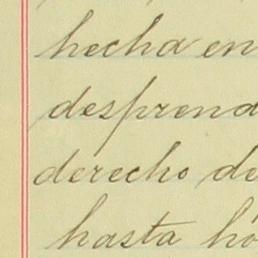 hecha en
desprend
derecho de
hasta hó